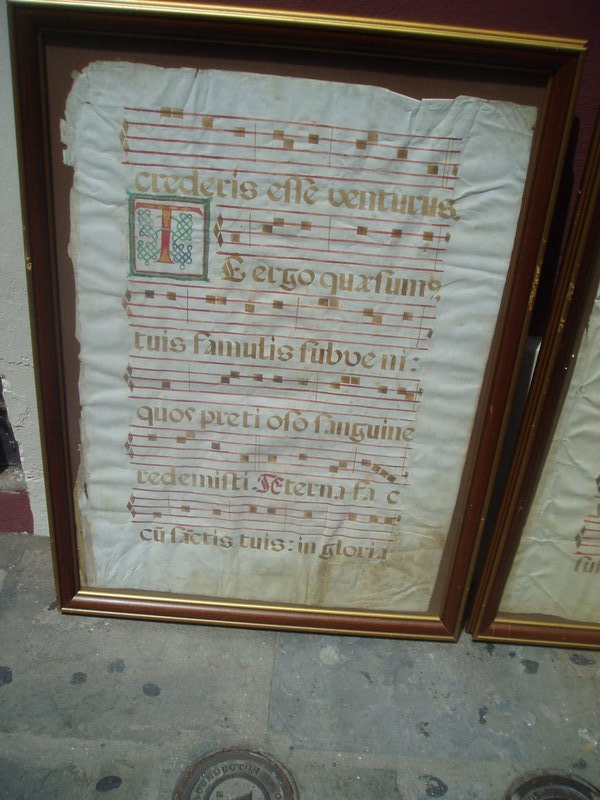 crederis essē venturus.
TE ergo quæsumꝰ
tuis famulis subveni:
quos pretioso sanguine
redemisti. Æterna fa c
cū sāctis tuis: in gloria